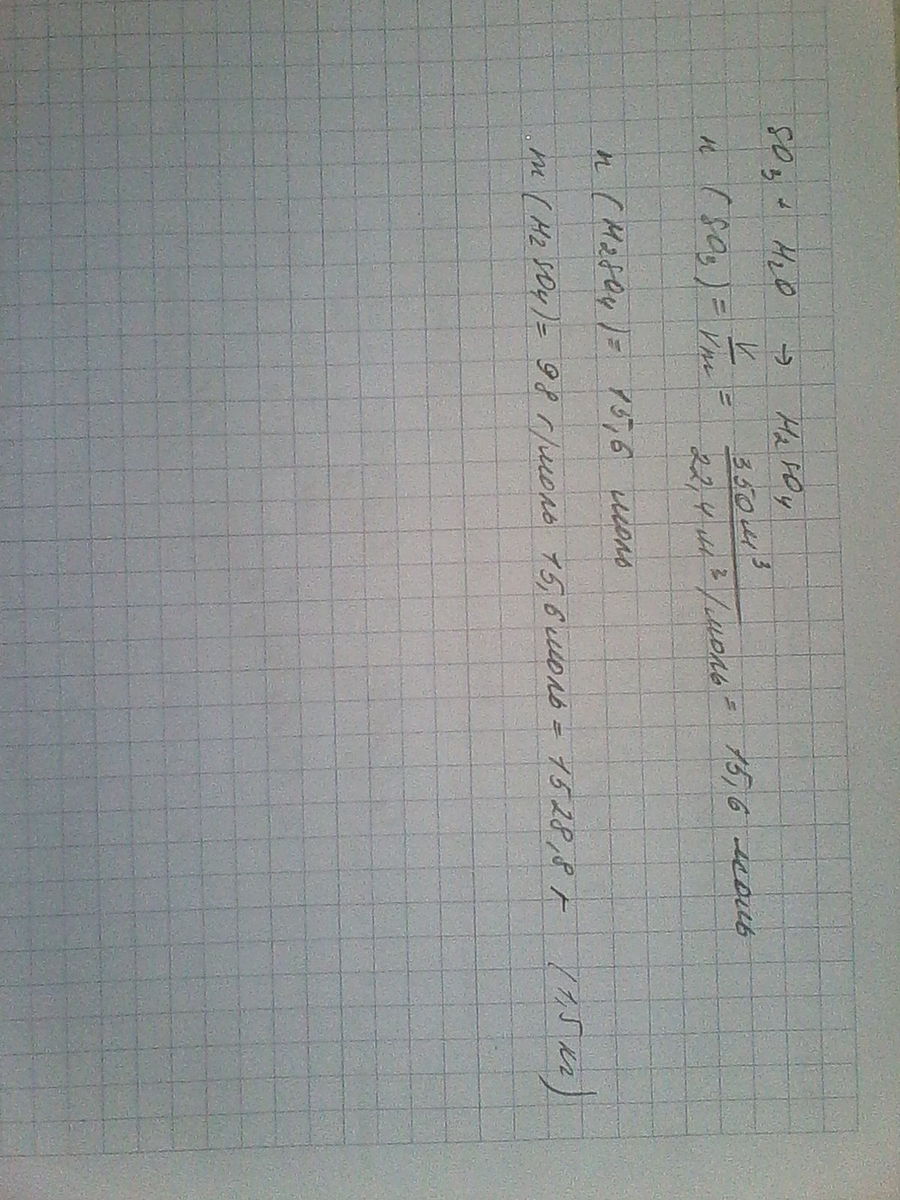 SO₃ + H₂O → H₂SO₄
n (SO₃) = V/Vm = 350 м³ / 22,4 м³/моль = 15,6 моль
n (H₂SO₄) = 15,6 моль
m (H₂SO₄) = 98 г/моль 15,6 моль = 1528,8 г (1,5 кг)